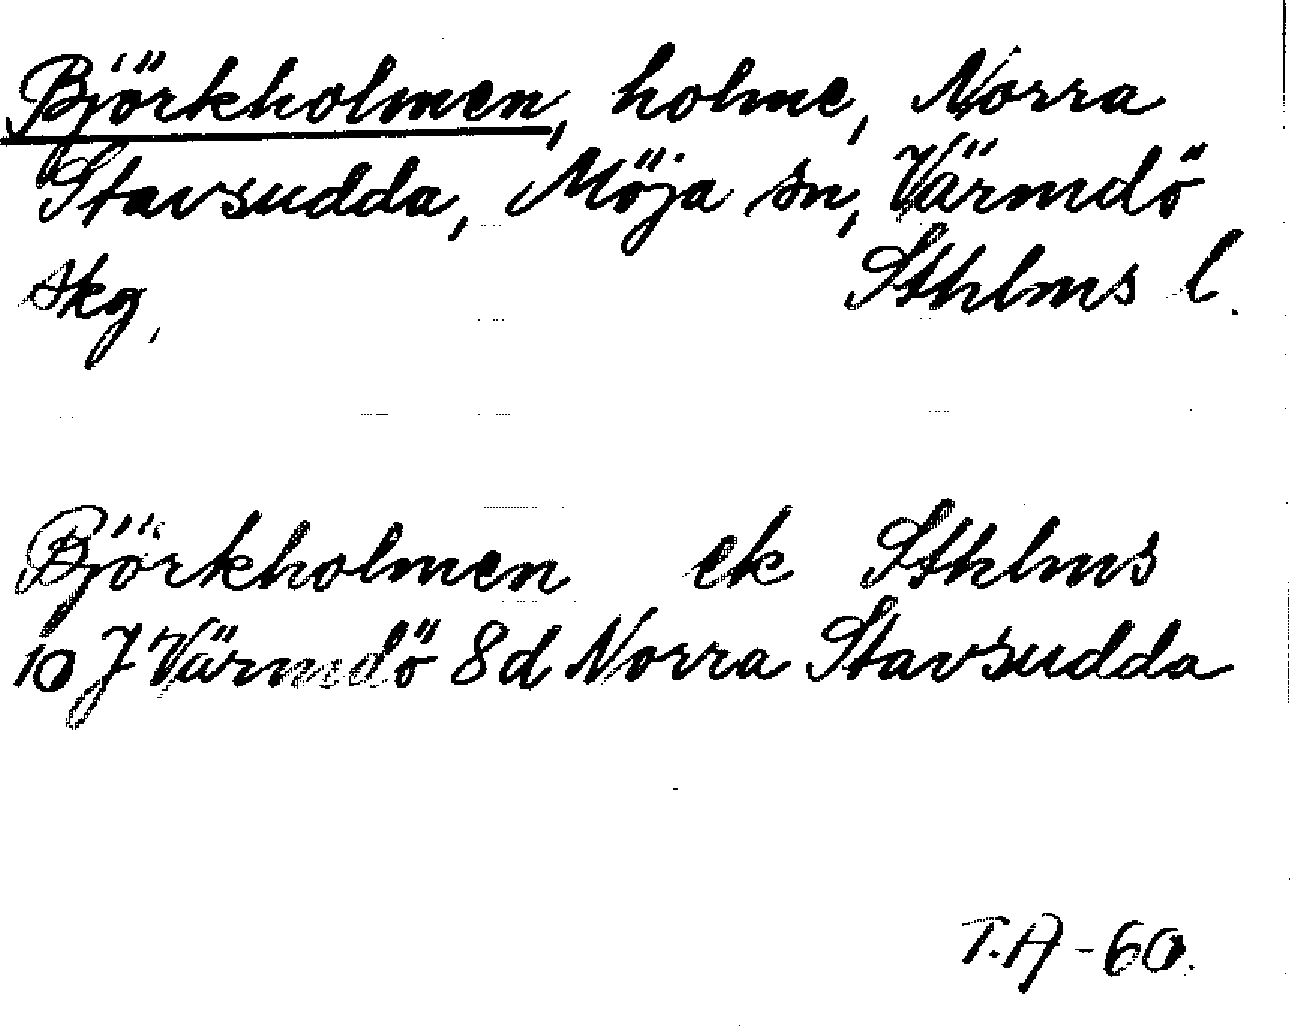 Björkholmen, holme, Norra
Stavsudda, Möja sn, Värmdö
skg, Sthlms l.
Björkholmen ek Sthlms
10 J Värmdö 8d Norra Stavsudda
T.A-60.